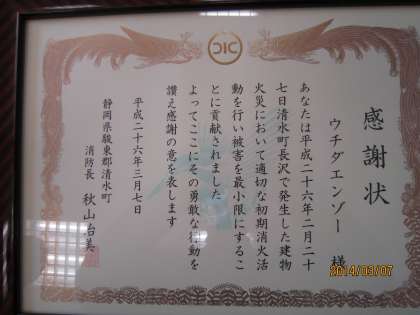 感謝状
ウチダエンゾー 様
あなたは平成二十六年二月二十
七日清水町長沢で発生した建物
火災において適切な初期消火活
動を行い被害を最小限にするこ
とに貢献されました
よってここにその勇敢な行動を
讃え感謝の意を表します
平成二十六年三月七日
静岡県駿東郡清水町
消防長 秋山治美
2014/03/07